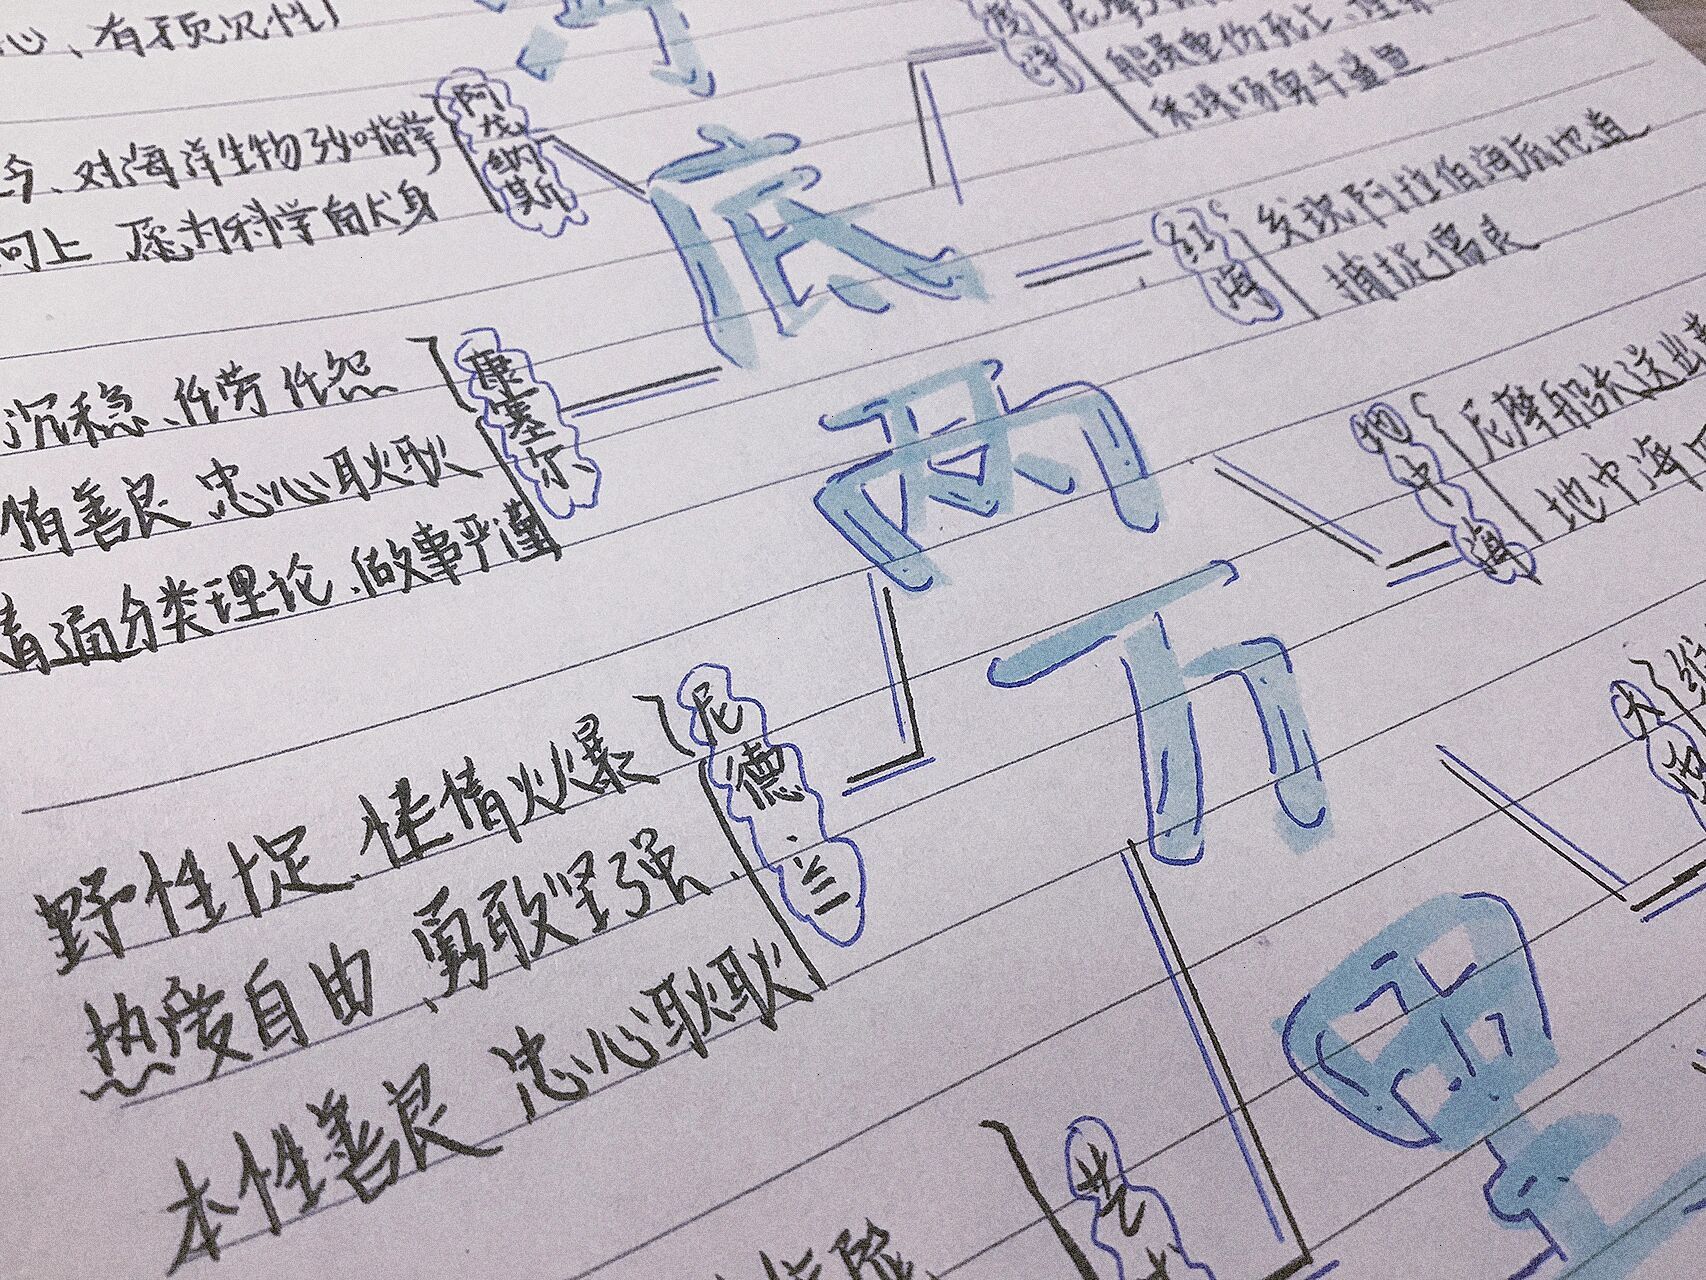 心、有预见性
今、对海洋生物了如指掌
向上 愿为科学自人身
阿龙纳斯
沉稳、任劳任怨
善良 忠心耿耿
精通分类理论、做事严谨
康塞尔
野性十足、性情火爆
热爱自由、勇敢坚强、
本性善良 忠心耿耿
尼德·兰
海底两万里
船员重伤死亡、埋葬
采珠场勇斗鲨鱼
红海
发现阿拉伯海底地道
捕捉儒艮
地中海
尼摩船长送出
地中海
大西